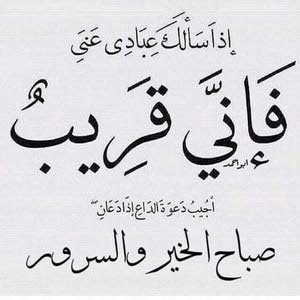 إذا سَألكَ عِبَادِى عَنيَ
فَإِنيَّ قَرِيبٌ
ابواحمد
أجيبُ دَعوَةَ الدَاعِ إذَا دَعَانِ
صباح الخير والسرور